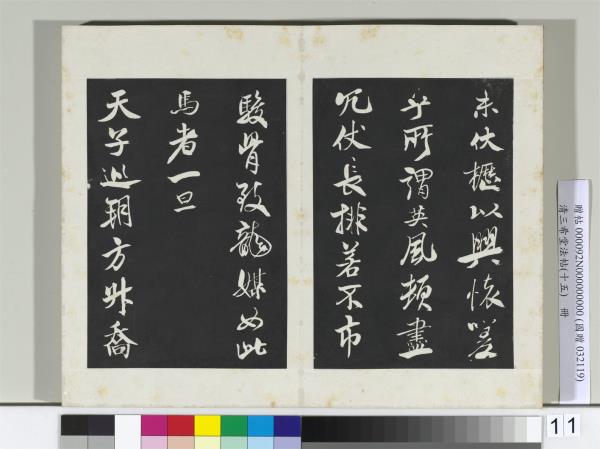 末伏櫪以興懷嗟
乎所謂英風頓盡
冗仗長排若不市
駿骨致龍媒如此
馬者一旦
天子巡朔方升喬
贈帖 000092N000000000 (國贈 032119)
清三希堂法帖(十五) 冊
11